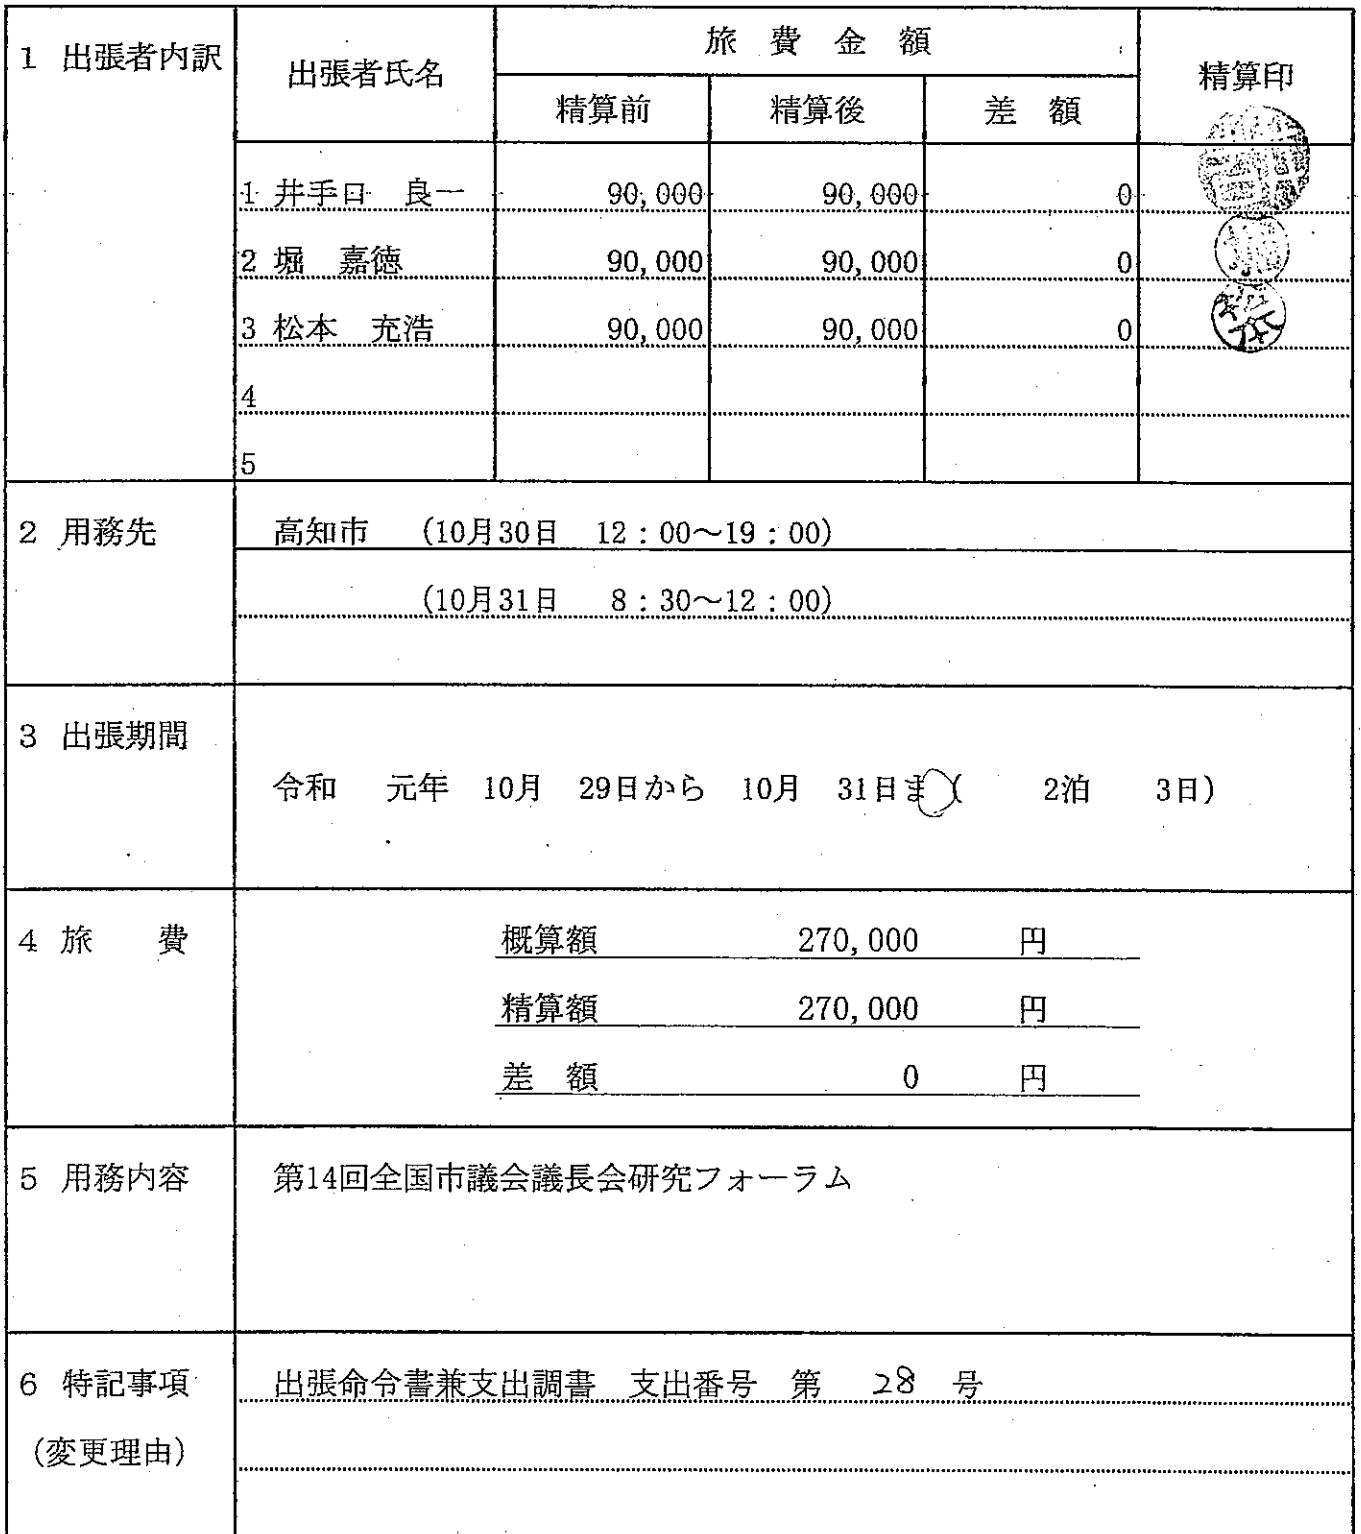 1 出張者内訳 出張者氏名 旅費金額 精算印
精算前 精算後 差額
1 井手口 良一 90,000 90,000 0
2 堀 嘉徳 90,000 90,000 0 堀
3 松本 充浩 90,000 90,000 0 松本
4
5
2 用務先 高知市 (10月30日 12：00～19：00)
(10月31日 8：30～12：00)
3 出張期間
令和 元年 10月 29日から 10月 31日ま ( 2泊 3日)
4 旅 費 概算額 270,000 円
精算額 270,000 円
差 額 0 円
5 用務内容 第14回全国市議会議長会研究フォーラム
6 特記事項 出張命令書兼支出調書 支出番号 第 28 号
(変更理由)